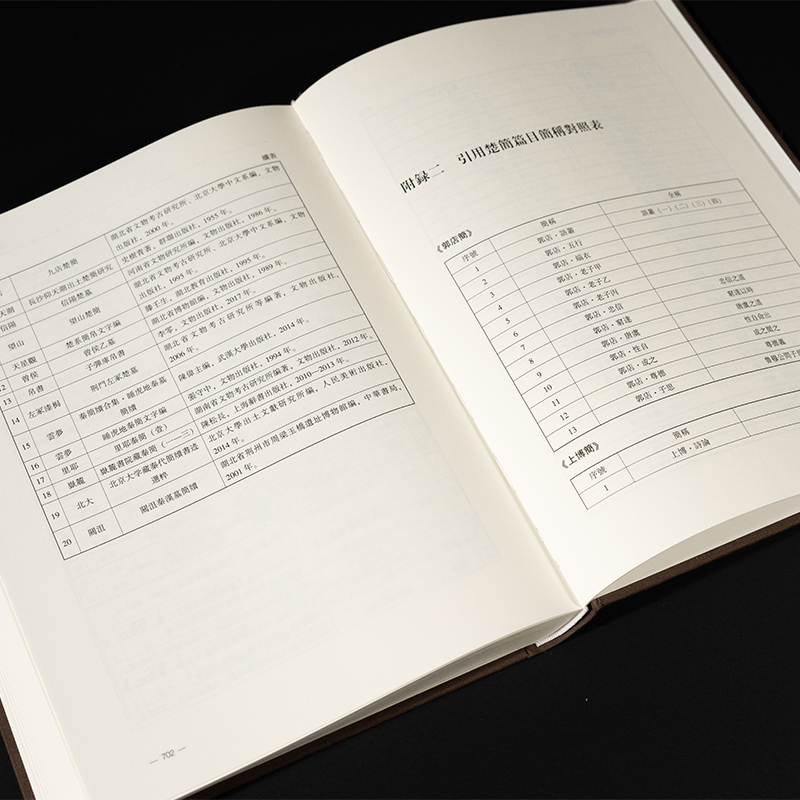 續表
九店楚簡 湖北省文物考古研究所、北京大學中文系編,文物
出版社,2000年。
天湖 長沙仰天湖出土楚簡研究 史樹青著,群聯出版社,1955年。
信陽 信陽楚墓 河南省文物研究所編,文物出版社,1986年。
望山 望山楚簡 湖北省文物考古研究所、北京大學中文系編,文物
出版社,1995年。
天星觀 楚系簡帛文字編 滕壬生,湖北教育出版社,1995年。
12 曾侯 曾侯乙墓 湖北省博物館編,文物出版社,1989年。
13 帛書 子彈庫帛書 李零,文物出版社,2017年。
14 左家漆梮 荊門左家楚墓 湖北省文物考古研究所等編著,文物出版社,
2006年。
15 雲夢 秦簡牘合集·睡虎地秦墓
簡牘 陳偉主編,武漢大學出版社,2014年。
16 雲夢 睡虎地秦簡文字編 張守中,文物出版社,1994年。
17 里耶 里耶秦簡(壹) 湖南省文物考古研究所編著,文物出版社,2012年。
18 嶽麓 嶽麓書院藏秦簡(一—三) 陳松長,上海辭書出版社,2010—2013年。
19 北大 北京大學藏秦代簡牘書迹
選粹 北京大學出土文獻研究所編,人民美術出版社,
2014年。
20 關沮 關沮秦漢墓簡牘 湖北省荊州市周梁玉橋遺址博物館編,中華書局,
2001年。
— 702 —
附録二 引用楚簡篇目簡稱對照表
《郭店簡》
序號 簡稱 全稱
1 郭店·語叢 語叢(一)(二)(三)(四)
2 郭店·五行
3 郭店·緇衣
4 郭店·老子甲
5 郭店·老子乙
6 郭店·老子丙
7 郭店·忠信 忠信之道
8 郭店·窮達 窮達以時
9 郭店·唐虞 唐虞之道
10 郭店·性自 性自命出
11 郭店·成之 成之聞之
12 郭店·尊德 尊德義
13 郭店·子思 魯穆公問子
《上博簡》
序號 簡稱
1 上博·詩論